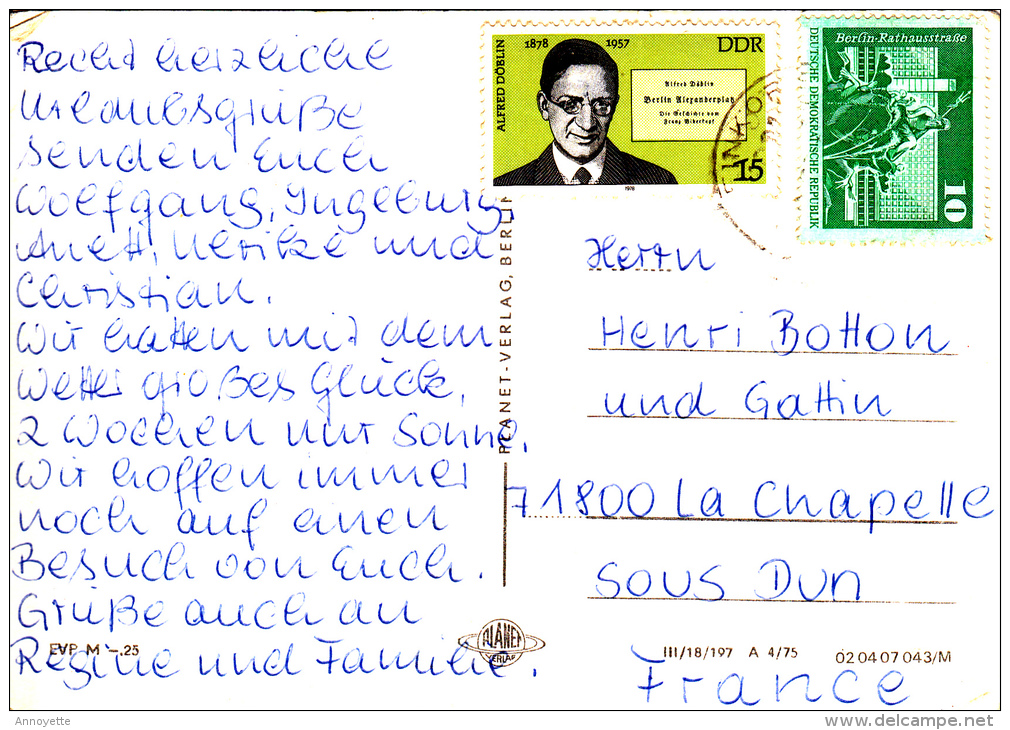 Recht herzliche
Urlaubsgrüße
senden Euch
Wolfgang, Ingeburg,
Anett, Ulrike und
Christian.
Wir hatten mit dem
Wetter großes Glück,
2 Wochen nur Sonne.
Wir hoffen immer
noch auf einen
Besuch von Euch.
Grüße auch an
Regine und Familie.
EVP M -.25
PLANET-VERLAG, BERLIN
PLANET
VERLAG
ALFRED DÖBLIN
1878 1957
DDR
Alfred Döblin
Berlin Alexanderplatz
Die Geschichte vom
Franz Biberkopf
15
1978
Berlin-Rathausstraße
DEUTSCHE DEMOKRATISCHE REPUBLIK
10
Herrn
Henri Botton
und Gattin
71800 La Chapelle
sous Dun
France
III/18/197 A 4/75 02 04 07 043/M
Annoyette
delcampe.net